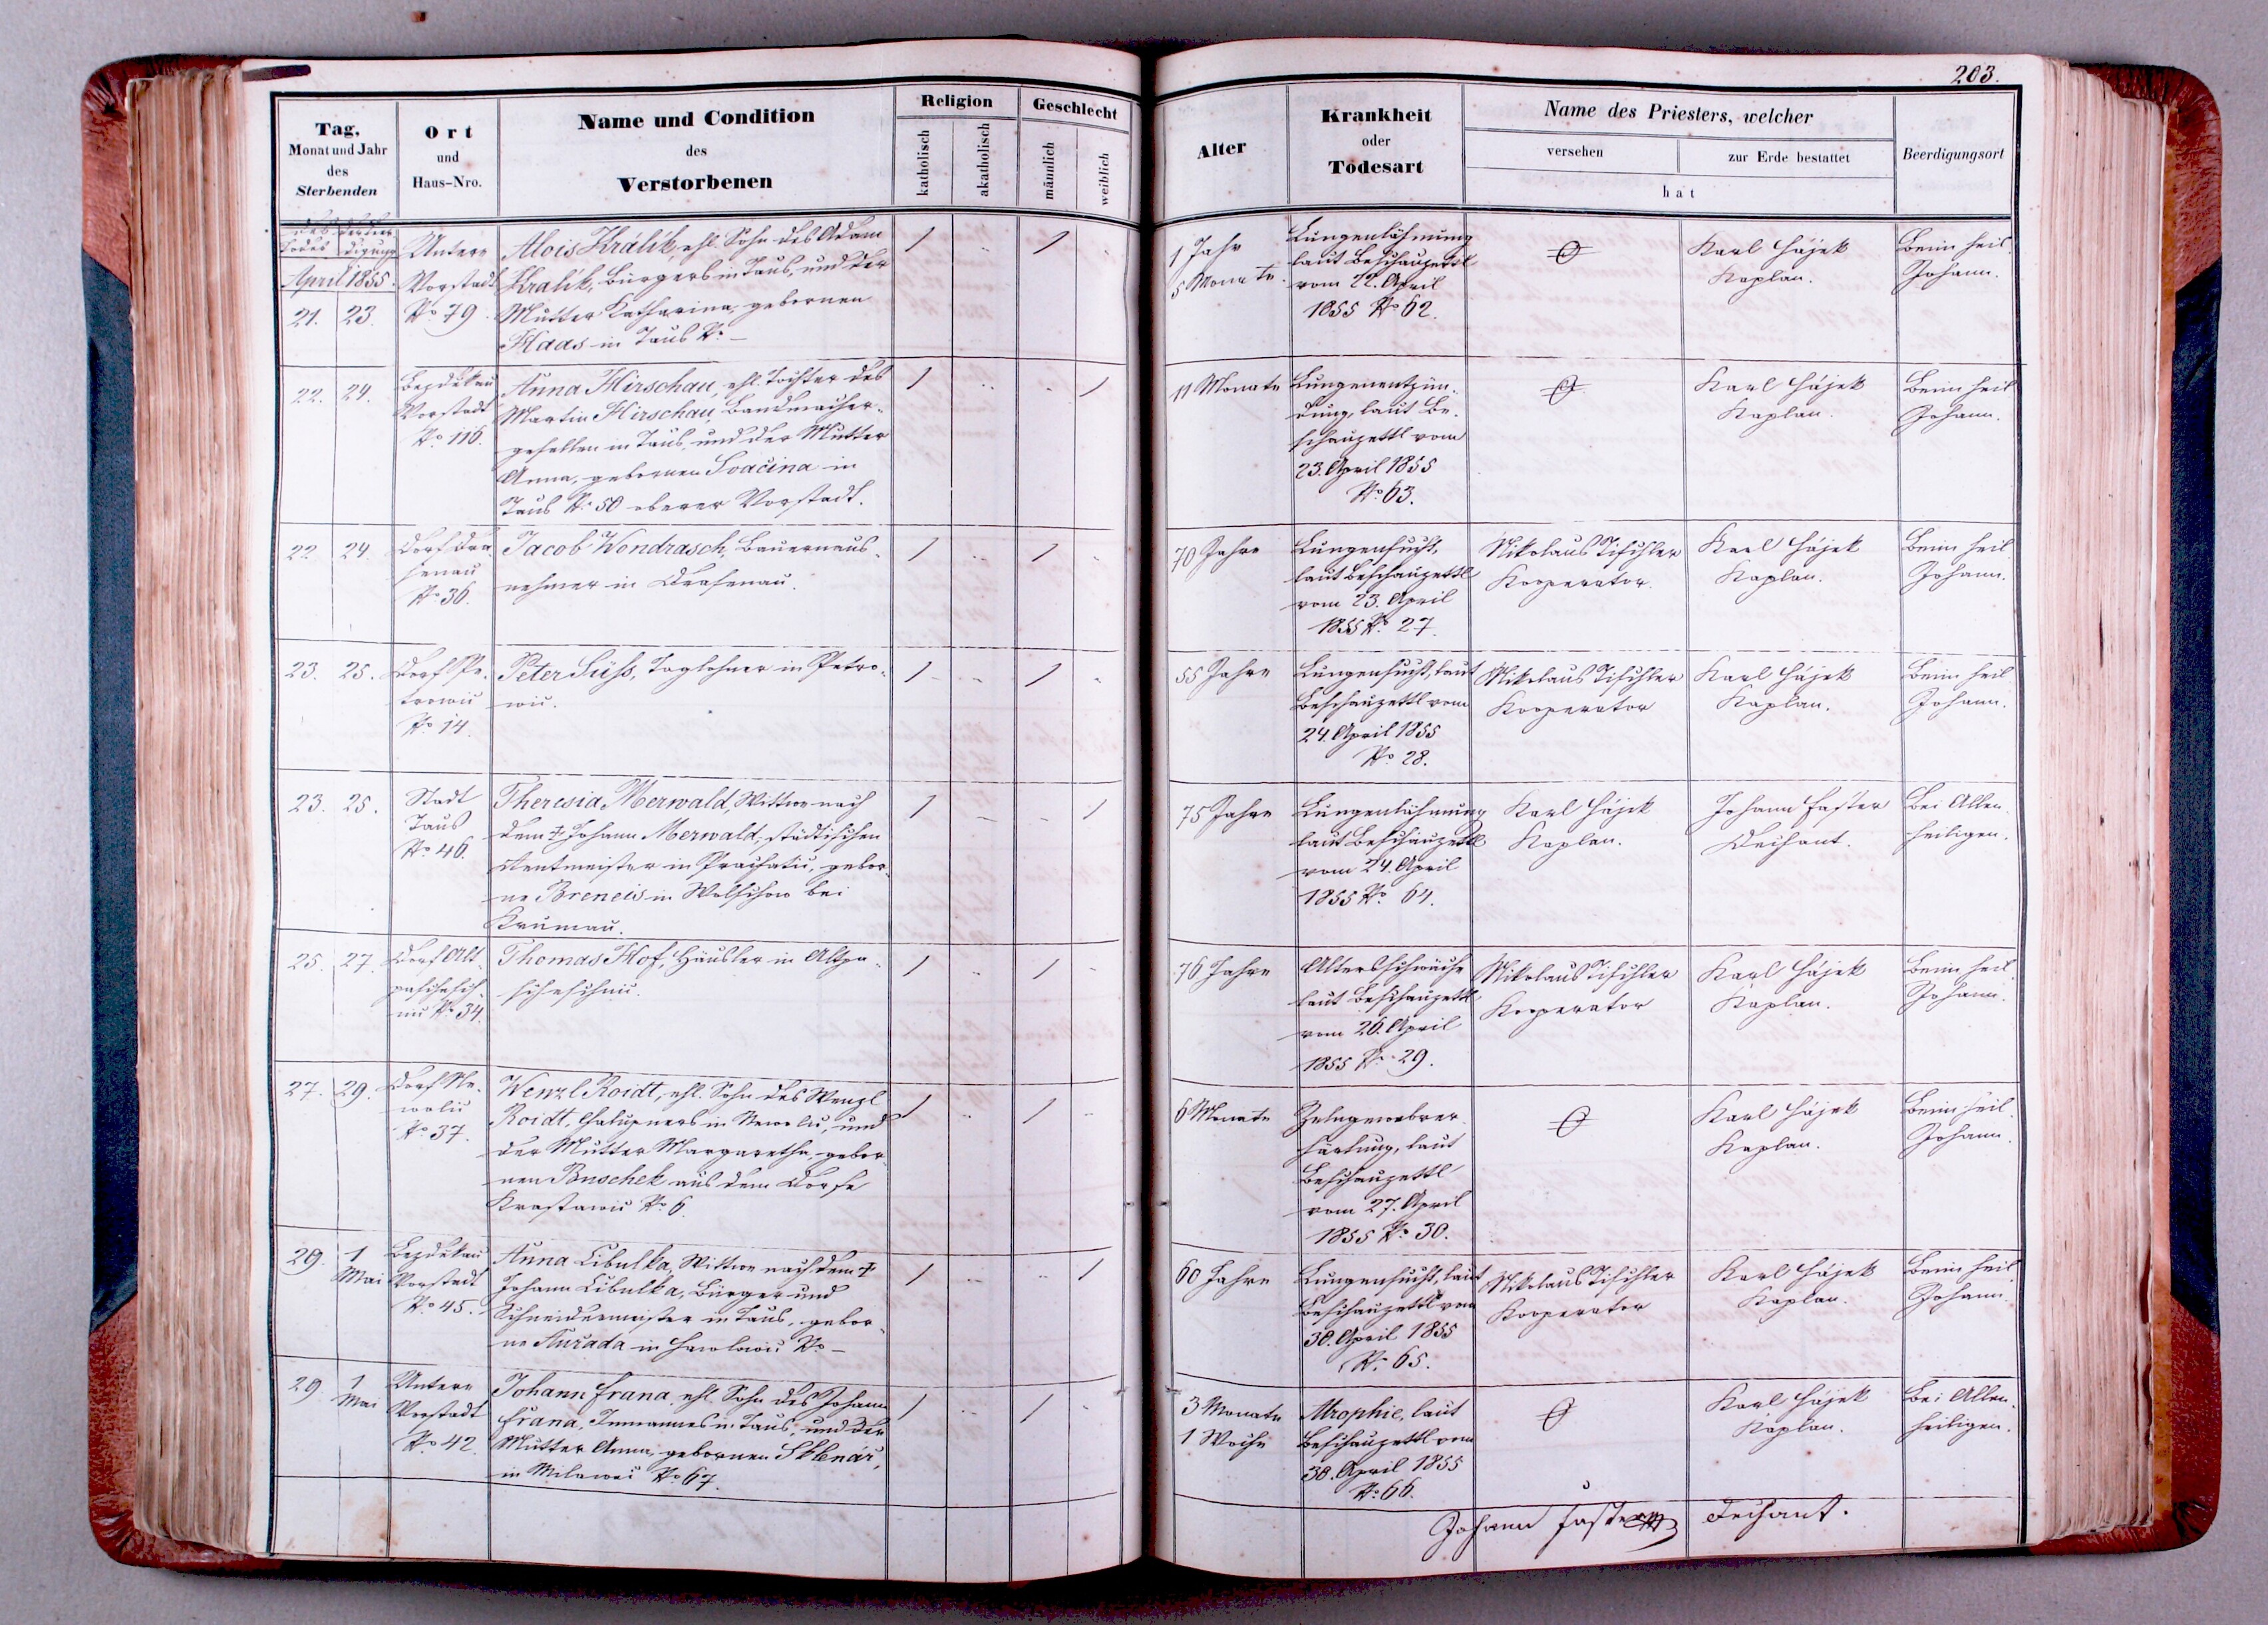 203.
Tag,
Monat und Jahr
des
Sterbenden
Ort
und
Haus-Nro.
Name und Condition
des
Verstorbenen
Religion
katholisch
akatholisch
Geschlecht
männlich
weiblich
Alter
Krankheit
oder
Todesart
Name des Priesters, welcher
versehen
zur Erde bestattet
hat
Beerdigungsort
des Todes
der Beerdigung
April 1855.
21. 23.
Untere
Vorstadt
No 79.
Alois Králík, ehl. Sohn des Adam
Kralík, Bürgers in Taus, und der
Mutter Katharina, gebornen
Haas in Taus No –
1 1
1 Jahr
5 Monate.
Lungenlähmung
laut Beschauzettl
vom 22. April
1855 No 62.
Karl Hájek
Kaplan.
Beim heil.
Johann.
22. 24.
Bezdekau
Vorstadt
No 116.
Anna Hirschau, ehl. Tochter des
Martin Hirschau, Bandmacher-
gesellen in Taus, und der Mutter
Anna, gebornen Svačina in
Taus No 50 oberer Vorstadt.
1 1
11 Monate
Lungenentzün-
dung, laut Be-
schauzettl vom
23. April 1855
No 63.
Karl Hájek
Kaplan.
Beim heil.
Johann.
22. 24.
Dorf Dra-
senau
No 36.
Jacob Wondrasch, Bauernaus-
nehmer in Drasenau.
1 1
70 Jahre
Lungensucht,
laut Beschauzettl
vom 23. April
1855 No 27.
Nikolaus Tischler
Kooperator.
Karl Hájek
Kaplan.
Beim heil.
Johann.
23. 25.
Dorf Pe-
trowic
No 14.
Peter Süss, Taglohner in Petro-
wic.
1 1
55 Jahre
Lungensucht, laut
Beschauzettl vom
24. April 1855
No 28.
Nikolaus Tischler
Kooperator
Karl Hájek
Kaplan.
Beim heil.
Johann.
23. 25.
Stadt
Taus
No 46.
Theresia Merwald, Wittwe nach
dem † Johann Merwald, städtischen
Rentmeister in Prachatic, gebor-
ne Breneis in Wolschow bei
Krumau.
1 1
75 Jahre
Lungenlähmung
laut Beschauzettl
vom 24. April
1855 No 64.
Karl Hájek
Kaplan.
Johann Faster
Dechant.
Bei Allen-
heiligen.
25. 27.
Dorf Alt-
paschesch-
nic No 34.
Thomas Hof, Häusler in Altpa-
scheschnic.
1 1
76 Jahre
Altersschwäche
laut Beschauzettl
vom 26. April
1855 No 29.
Nikolaus Tischler
Kooperator
Karl Hájek
Kaplan.
Beim heil.
Johann.
27. 29.
Dorf Ne-
wolic
No 37.
Wenzl Roidt, ehl. Sohn des Wenzl
Roidt, Chalupners in Newolic, und
der Mutter Margaretha, gebor-
nen Buschek aus dem Dorfe
Krastawic No 6.
1 1
6 Monate
Zellgewebver-
härtung, laut
Beschauzettl
vom 27. April
1855 No 30.
Karl Hájek
Kaplan.
Beim heil.
Johann.
29. 1
Mai
Bezdekau
Vorstadt
No 45.
Anna Cibulka, Wittwe nach dem †
Johann Cibulka, Bürger und
Schneidermeister in Taus, gebor-
ne in No –
1 1
60 Jahre
Lungensucht, laut
Beschauzettl vom
30. April 1855
No 65.
Nikolaus Tischler
Kooperator
Karl Hájek
Kaplan.
Beim heil.
Johann.
29. 1
Mai
Untere
Vorstadt
No 42.
Johann Frana, ehl. Sohn des Johann
Frana, Inmannes in Taus, und der
Mutter Anna, gebornen Sklenár,
in Milaweč No 67.
1 1
3 Monate
1 Woche
Atrophie, laut
Beschauzettl vom
30. April 1855
No 66.
Karl Hájek
Kaplan.
Bei Allen-
heiligen.
Johann Faster Dechant.